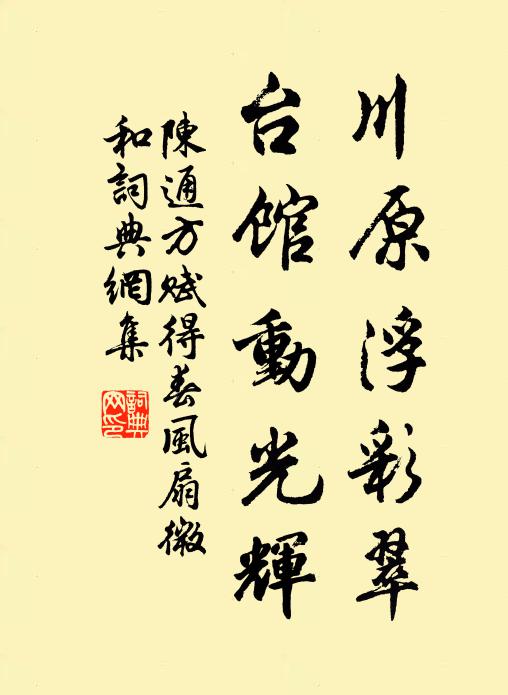 川原浮彩翠
台館動光輝
陳通方賦得春風扇微
和詞典網集
詞典
网印